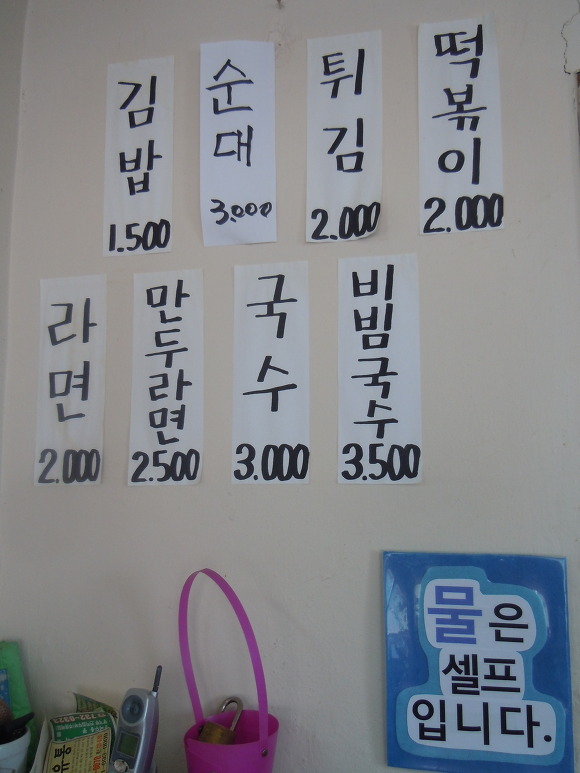 김밥
1.500
순대
3.000
튀김
2.000
떡볶이
2.000
라면
2.000
만두라면
2.500
국수
3.000
비빔국수
3.500
물은
셀프
입니다.